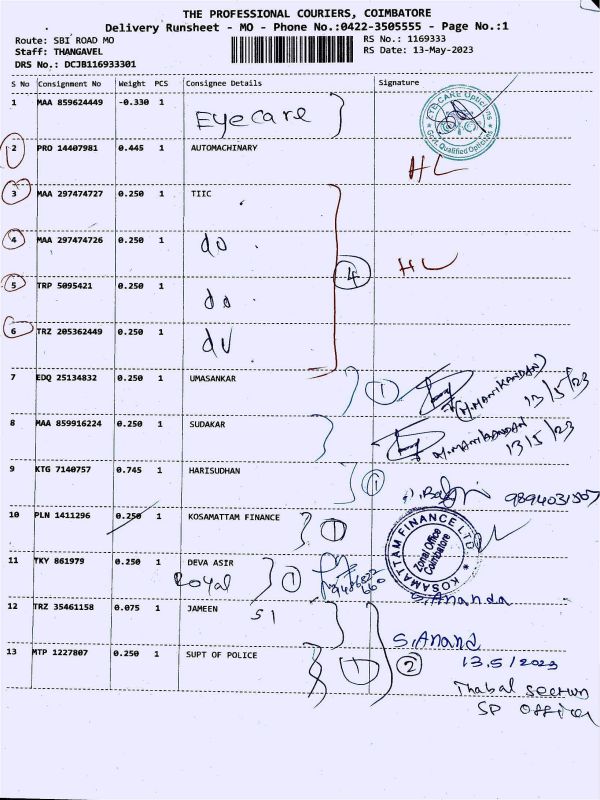 THE PROFESSIONAL COURIERS, COIMBATORE
Delivery Runsheet - MO - Phone No.:0422-3505555 - Page No.:1
Route: SBI ROAD MO
RS No.: 1169333
Staff: THANGAVEL
RS Date: 13-May-2023
DRS No.: DCJB116933301
S No Consignment No Weight PCS Consignee Details Signature
1 MAA 859624449 -0.330 1 Eyecare
EYE CARE Opticians
Govt. Qualified Opticians
2 PRO 14407981 0.445 1 AUTOMACHINARY
HL
3 MAA 297474727 0.250 1 TIIC
4 MAA 297474726 0.250 1 do
4 HL
5 TRP 5095421 0.250 1 do
6 TRZ 205362449 0.250 1 do
7 EDQ 25134832 0.250 1 UMASANKAR
1 (M.MANIKANDAN) 13/5/23
8 MAA 859916224 0.250 1 SUDAKAR
M.MANIKANDAN 13/5/23
9 KTG 7140757 0.745 1 HARISUDHAN
1
10 PLN 1411296 0.250 1 KOSAMATTAM FINANCE 1
KOSAMATTAM FINANCE LTD
Zonal Office
Coimbatore
11 TKY 861979 0.250 1 DEVA ASIR
Royal 1
S.Ananda
12 TRZ 35461158 0.075 1 JAMEEN 51
S.Anand
13 MTP 1227807 0.250 1 SUPT OF POLICE 1 2
13.5/2023
Thabal section
SP office